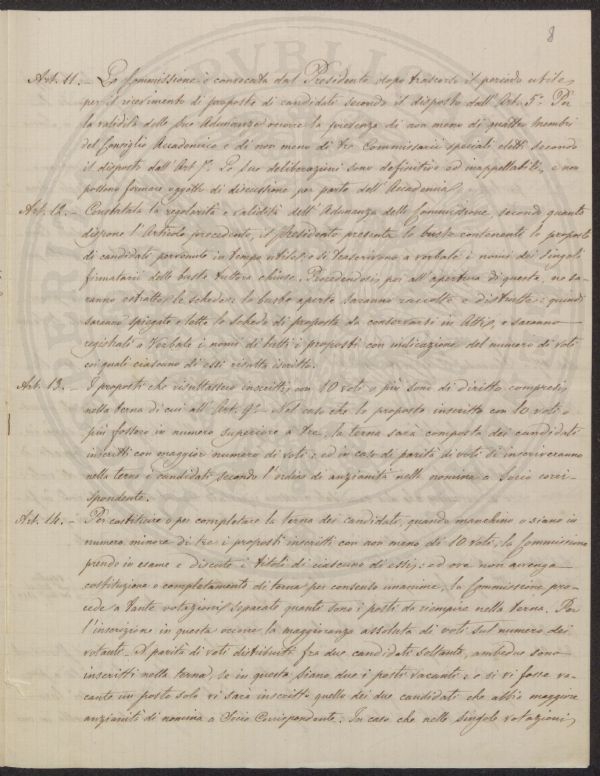 8
Art. 11. – La Commissione è convocata dal Presidente dopo trascorso il periodo utile,
per il ricevimento di proposte di candidati secondo il disposto dall'Art. 5°. Per
la validità delle sue Adunanze occorre la presenza di non meno di quattro membri
del Consiglio Accademico e di non meno di tre Commissarii speciali eletti secondo
il disposto dall'Art. Le sue deliberazioni sono definitive ed inappellabili, e non
possono formare oggetto di discussione per parte dell'Accademia.
Art. 12. – Constatata la regolarità e validità dell'Adunanza della Commissione, secondo quanto
dispone l'Articolo precedente, il Presidente presenta le buste contenenti le proposte
di candidati pervenute in tempo utile: e si trascrivono a verbale i nomi dei singoli
firmatarii delle buste tuttora chiuse. Procedendosi, poi all'apertura di queste, ne sa-
ranno estratte le schede: le buste aperte saranno raccolte e distrutte: quindi
saranno spiegate e lette le schede di proposta da conservarsi in Atti, e saranno
registrati a Verbale i nomi di tutti i proposti con indicazione del numero di voti
coi quali ciascuno di essi risulta iscritto.
Art. 13. – I proposti che risultassero inscritti con 10 voti o più sono di diritto compresi
nella terna di cui all'Art. 9°. – Nel caso che le proposte inscritte con 10 voti o
più fossero in numero superiore a tre, la terna sarà composta dei candidati
inscritti con maggior numero di voti: ed in caso di parità di voti si inscriveranno
nella terna i candidati secondo l'ordine di anzianità nella nomina a Socio corri-
spondente.
Art. 14. – Per costituire o per completare la terna dei candidati, quando manchino o siano in
numero minore di tre i proposti inscritti con non meno di 10 voti, la Commissione
prende in esame e discute i titoli di ciascuno di essi: ed ove non avvenga
costituzione o completamento di terna per consenso unanime, la Commissione pro-
cede a tante votazioni separate quanti sono i posti da riempire nella terna. Per
l'inscrizione in questa occorre la maggioranza assoluta di voti sul numero dei
votanti. A parità di voti distribuiti fra due candidati soltanto, ambedue sono
inscritti nella terna, se in questa siano due i posti vacanti: e se vi fosse va-
cante un posto solo vi sarà inscritto quello dei due candidati che abbia maggiore
anzianità di nomina a Socio Corrispondente. In caso che nelle singole votazioni,